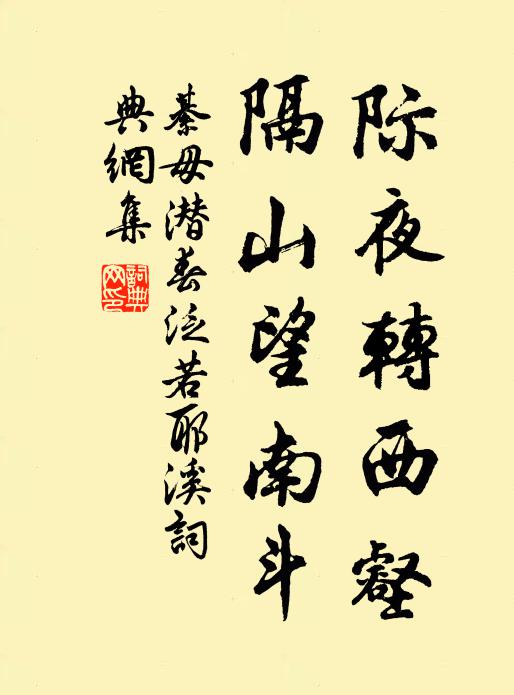 际夜轉西壑
隔山望南斗
綦毋潜春泛若耶溪詞
典網集
詞典
网印